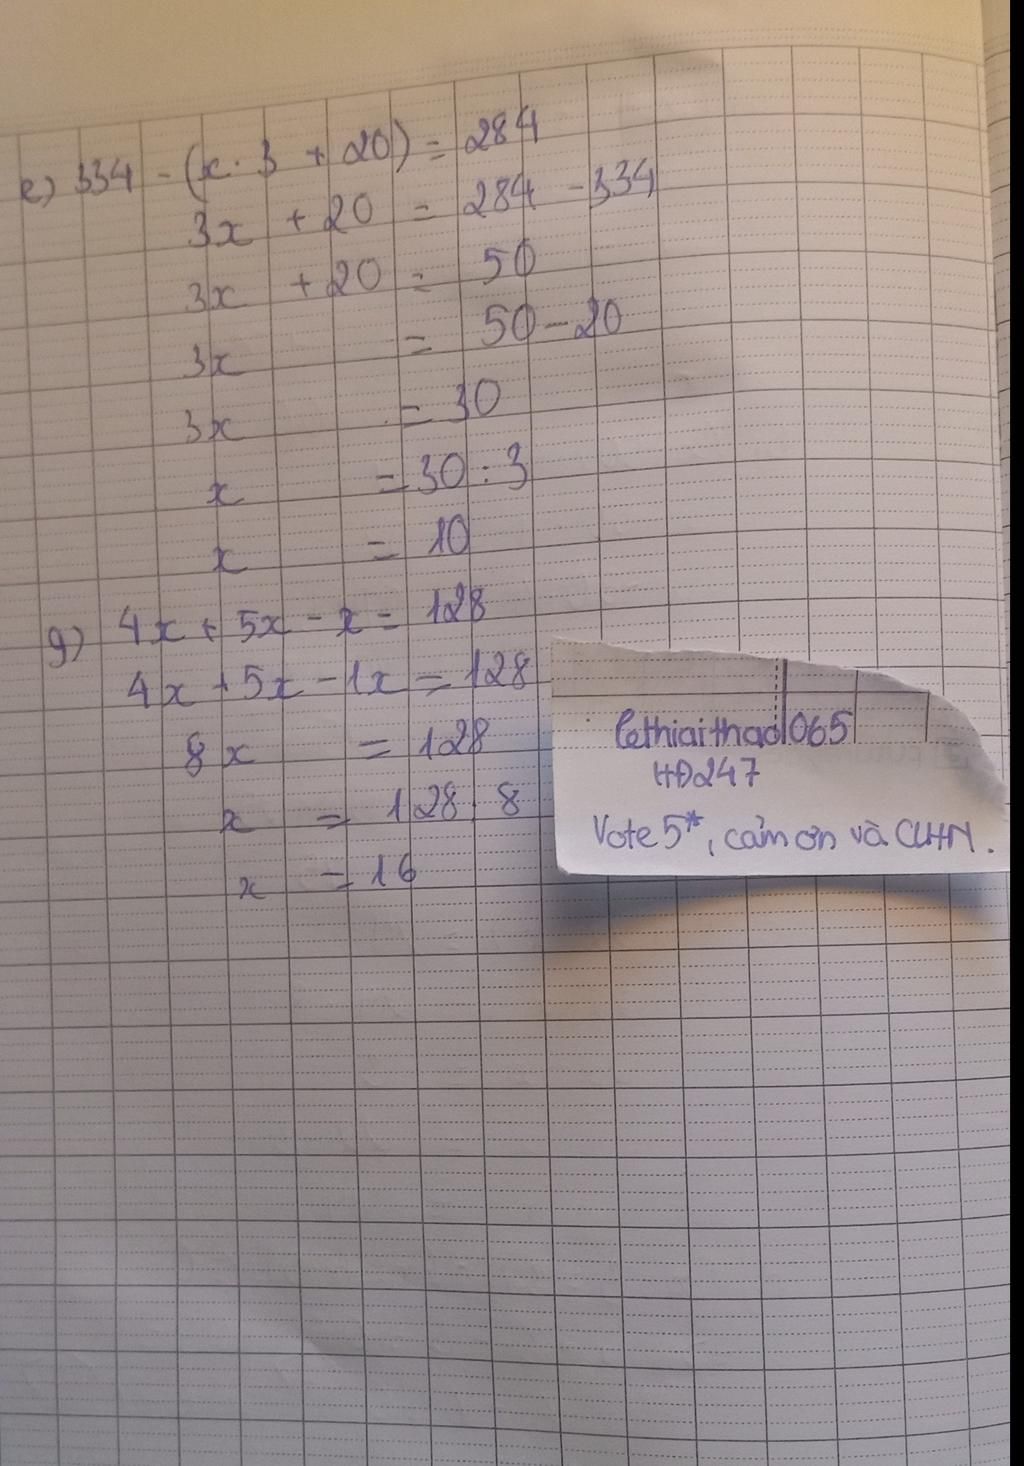 e) 334 - (x . 3 + 20) = 284
3x + 20 = 284 - 334
3x + 20 = 50
3x = 50 - 20
3x = 30
x = 30 : 3
x = 10
g) 4x + 5x - x = 128
4x + 5x - 1x = 128
8x = 128
x = 128 : 8
x = 16
lethiaithao1065
HD247
Vote 5*, cảm ơn và CLHN.